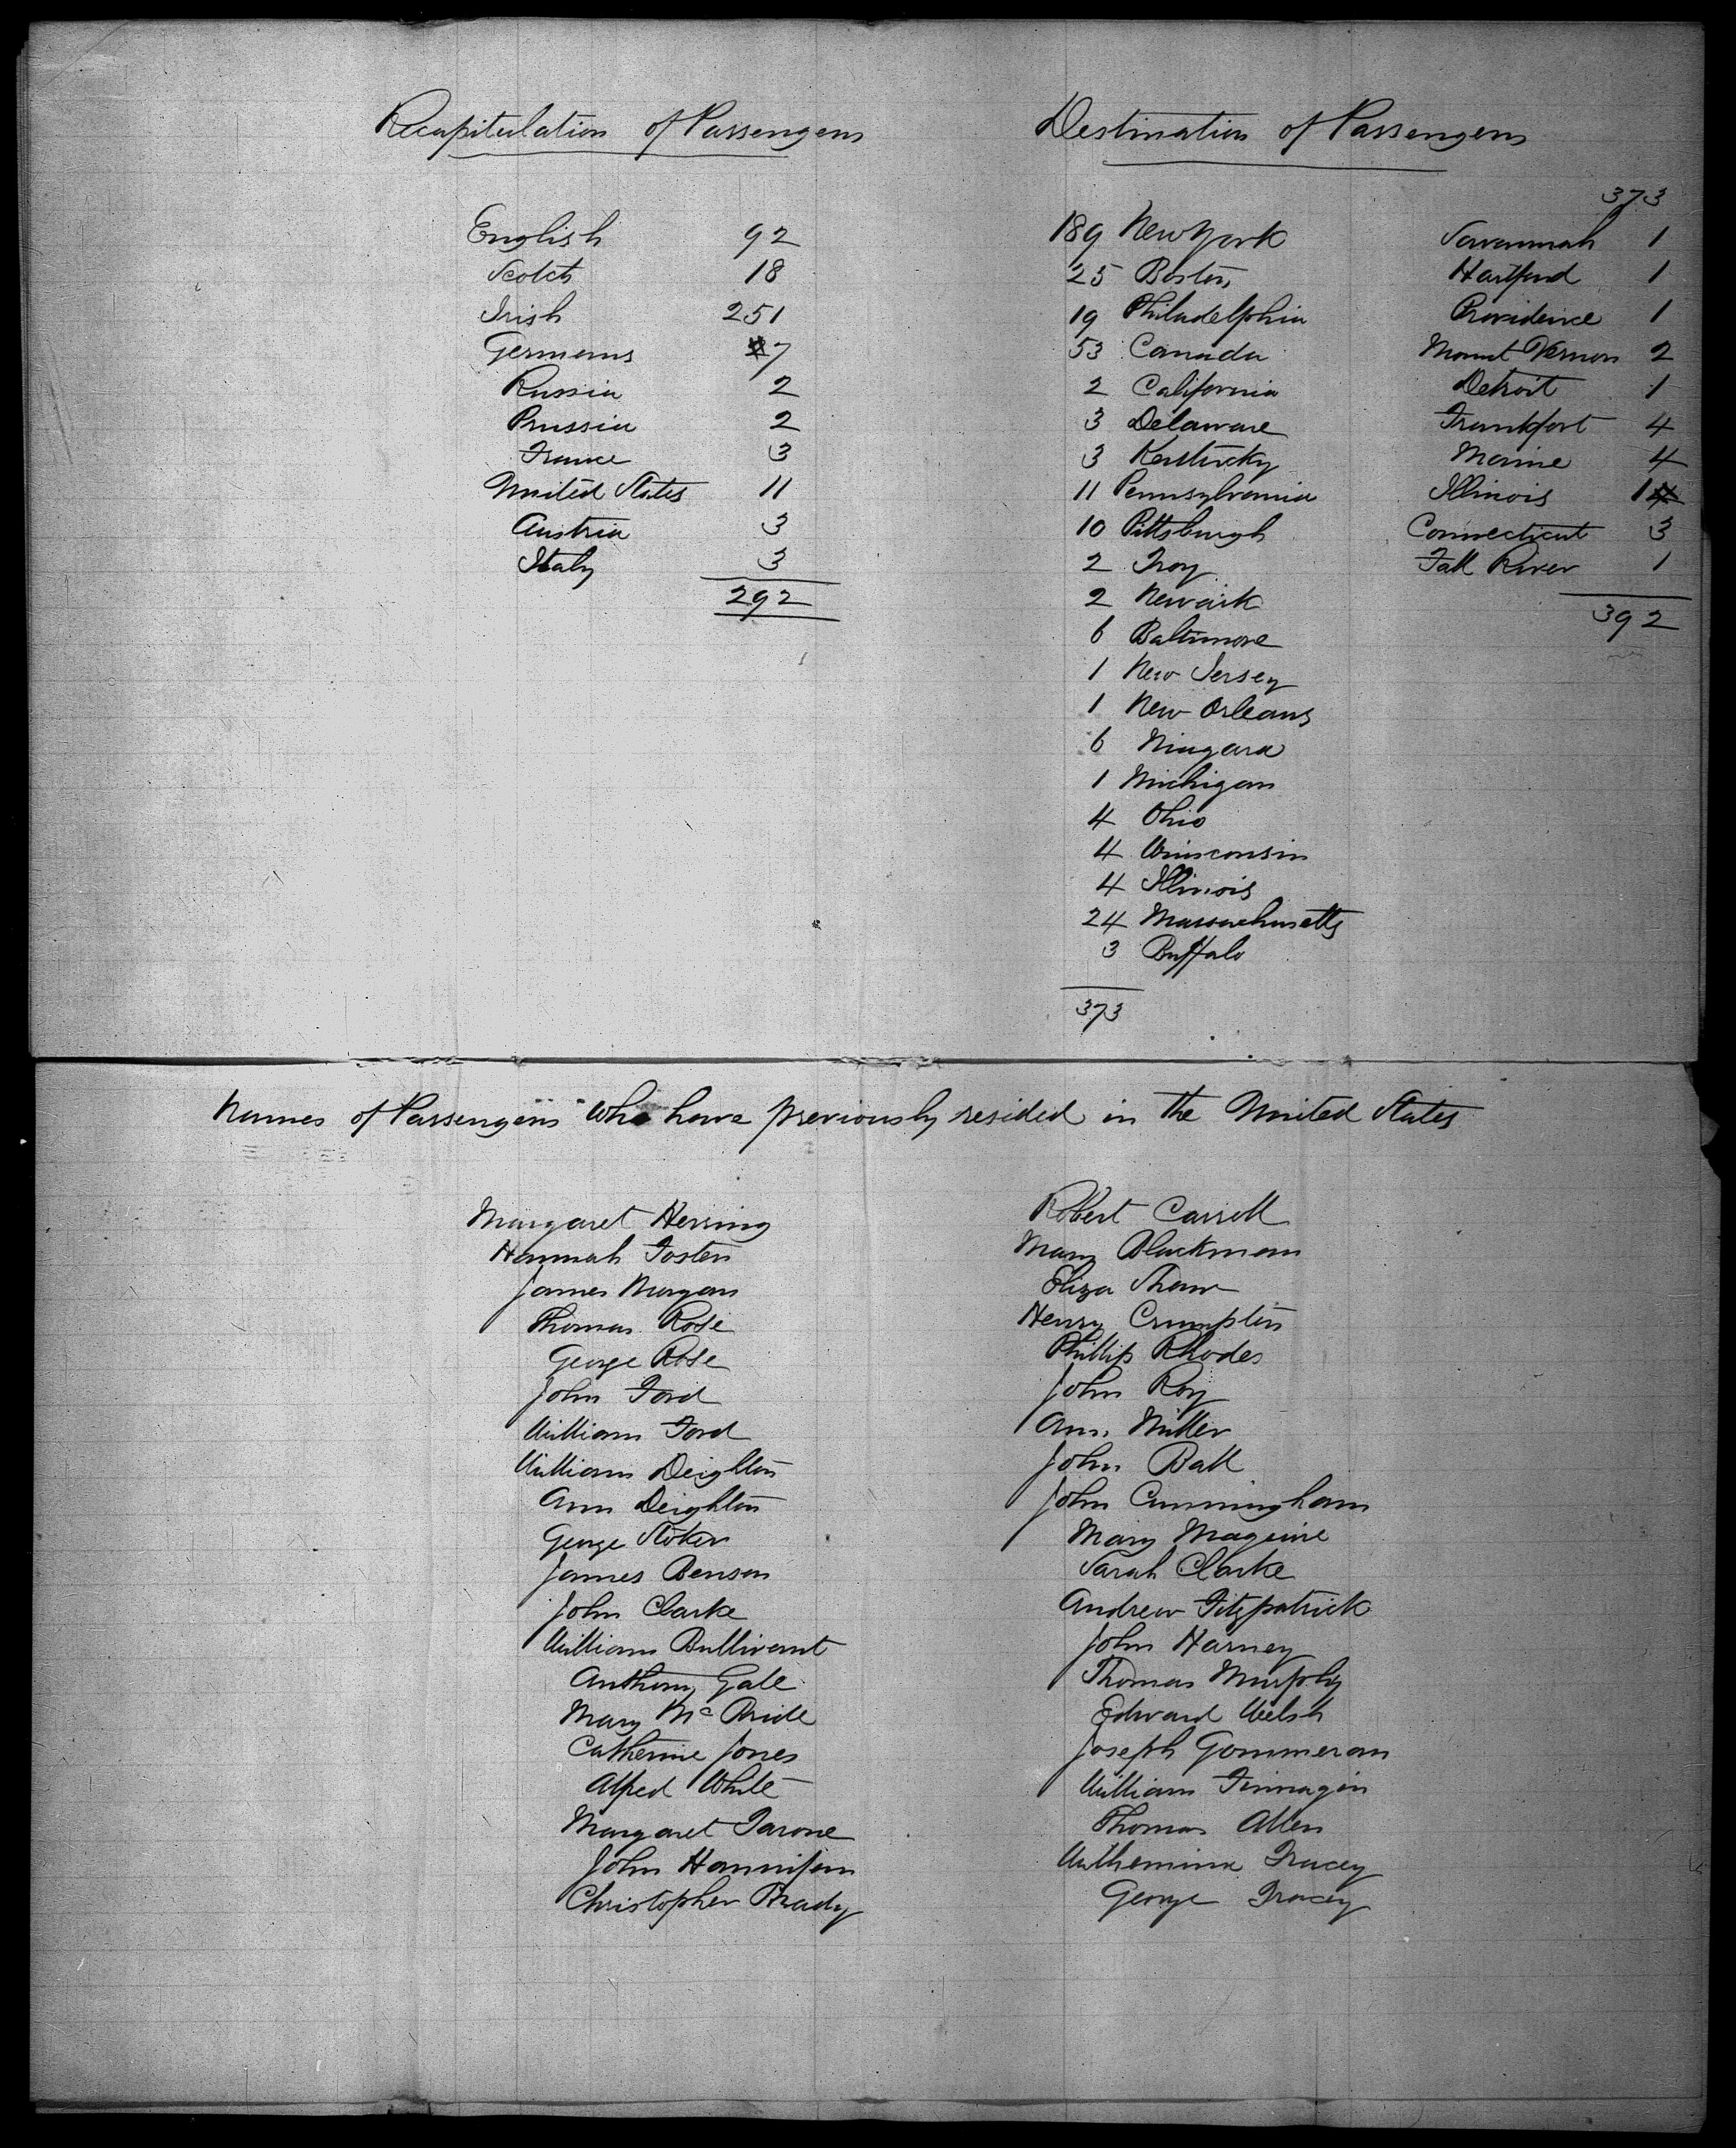 Recapitulation of Passengers
English 92
Scotch 18
Irish 251
Germans 7
Russia 2
Prussia 2
France 3
United States 11
Austria 3
Italy 3
292
Destination of Passengers
189 New York
25 Boston
19 Philadelphia
53 Canada
2 California
3 Delaware
3 Kentucky
11 Pennsylvania
10 Pittsburgh
2 Troy
2 Newark
6 Baltimore
1 New Jersey
1 New Orleans
6 Niagara
1 Michigan
4 Ohio
4 Winsconsin
4 Illinois
24 Massachusetts
3 Buffalo
373
373
Savannah 1
Hartford 1
Providence 1
Mount Vernon 2
Detroit 1
Frankfort 4
Maine 4
Illinois 1
Connecticut 3
Fall River 1
392
Names of Passengers who have previously resided in the United States
Margaret Herring
Hannah Foster
James Morgan
Thomas Rose
George Rose
John Ford
William Ford
William Deighton
Ann Deighton
George Stoker
James Benson
John Clarke
William Bullivant
Anthony Gale
Mary McBride
Catherine Jones
Alfred White
Margaret Farone
John Hannifan
Christopher Brady
Robert Carroll
Mary Blackman
Eliza Shaw
Henry Crumpton
Phillip Rhodes
John Roy
Ann Miller
John Ball
John Cunningham
Mary Magurie
Sarah Clarke
Andrew Fitzpatrick
John Harney
Thomas Murphy
Edward Welsh
Joseph Gommeran
William Finnagin
Thomas Allen
Tracey
George Tracey